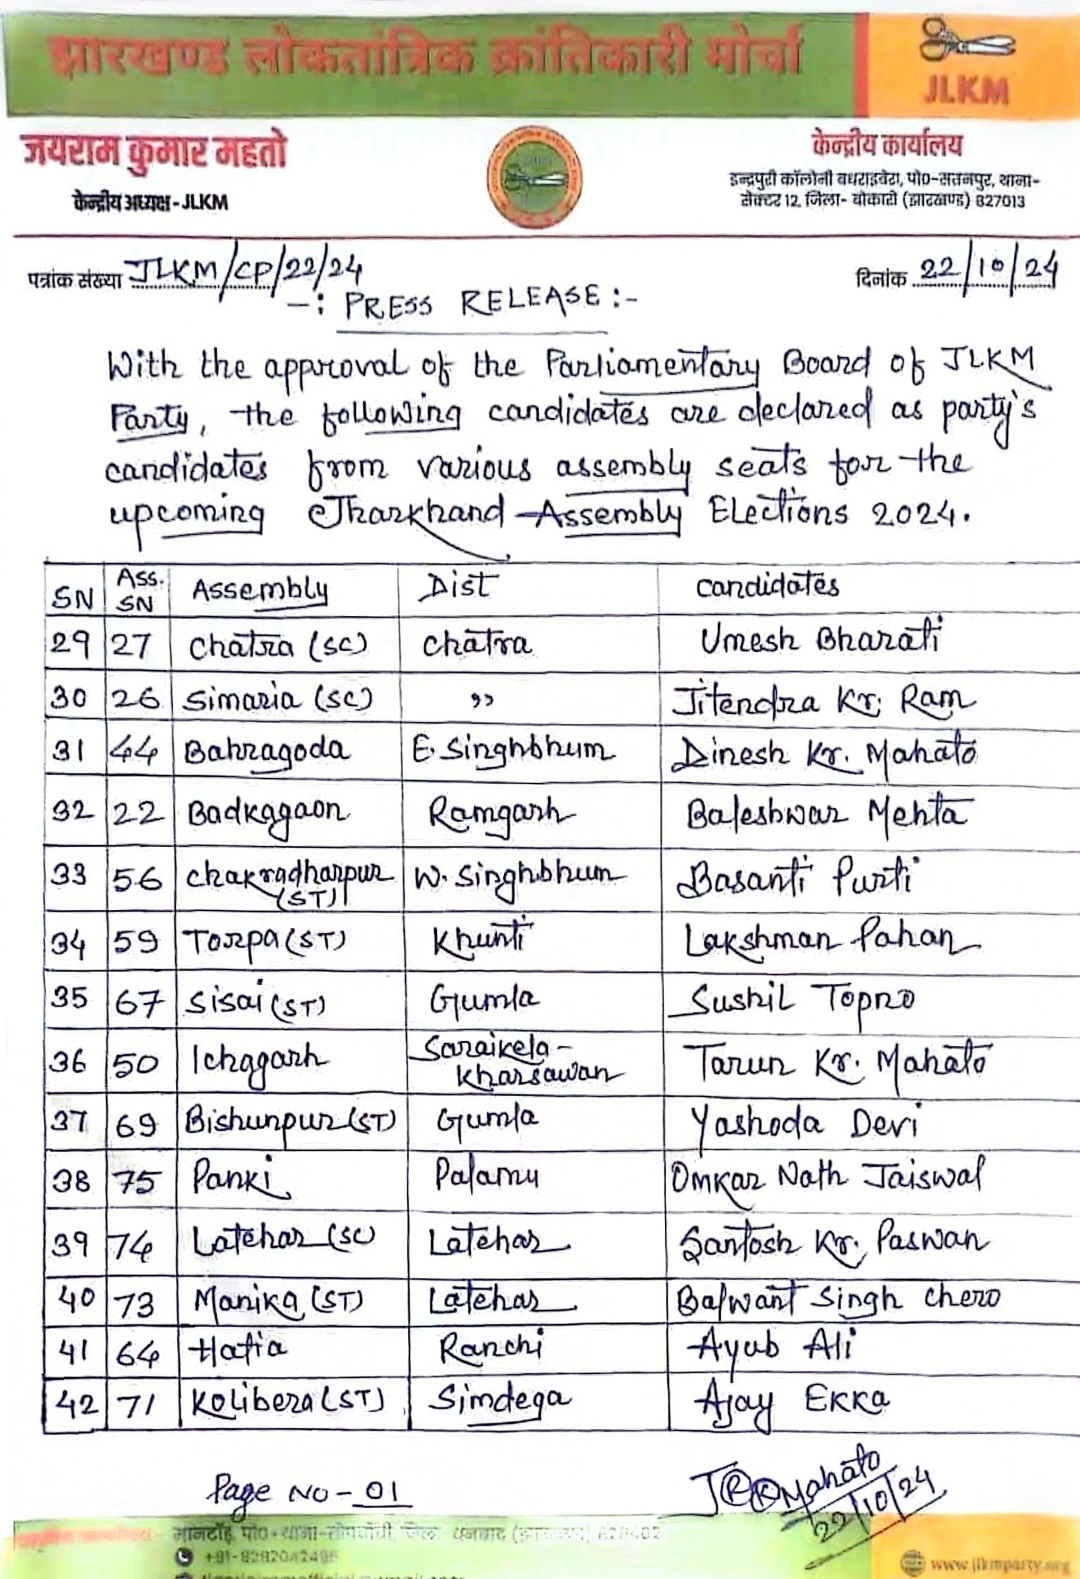 झारखण्ड लोकतांत्रिक क्रांतिकारी मोर्चा
JLKM
जयराम कुमार महतो
केन्द्रीय अध्यक्ष - JLKM
केन्द्रीय कार्यालय
इन्द्रपुरी कॉलोनी बधराइबेरा, पो०-सतनपुर, थाना-
सेक्टर 12, जिला- बोकारो (झारखण्ड) 827013
पत्रांक संख्या JLKM/CP/22/24
दिनांक 22/10/24
-: PRESS RELEASE :-
With the approval of the Parliamentary Board of JLKM
Party, the following candidates are declared as party's
candidates from various assembly seats for the
upcoming Jharkhand Assembly Elections 2024.
SN Ass. SN Assembly Dist Candidates
29 27 Chatra (SC) Chatra Umesh Bharati
30 26 Simaria (SC) ,, Jitendra Kr. Ram
31 44 Bahragoda E. Singhbhum Dinesh Kr. Mahato
32 22 Badkagaon Ramgarh Baleshwar Mehta
33 56 Chakradharpur (ST) W. Singhbhum Basanti Purti
34 59 Torpa (ST) Khunti Lakshman Pahan
35 67 Sisai (ST) Gumla Sushil Topno
36 50 Ichagarh Saraikela-Kharsawan Tarun Kr. Mahato
37 69 Bishunpur (ST) Gumla Yashoda Devi
38 75 Panki Palamu Omkar Nath Jaiswal
39 74 Latehar (SC) Latehar Santosh Kr. Paswan
40 73 Manika (ST) Latehar Balwant Singh Chero
41 64 Hatia Ranchi Ayub Ali
42 71 Kolibera (ST) Simdega Ajay Ekka
Page No - 01
Mahato
22/10/24
मानटांड़, पो०+थाना-तोपचांची, जिला- धनबाद (झारखण्ड) 828402
+91-8292042495
www.jlkmparty.org